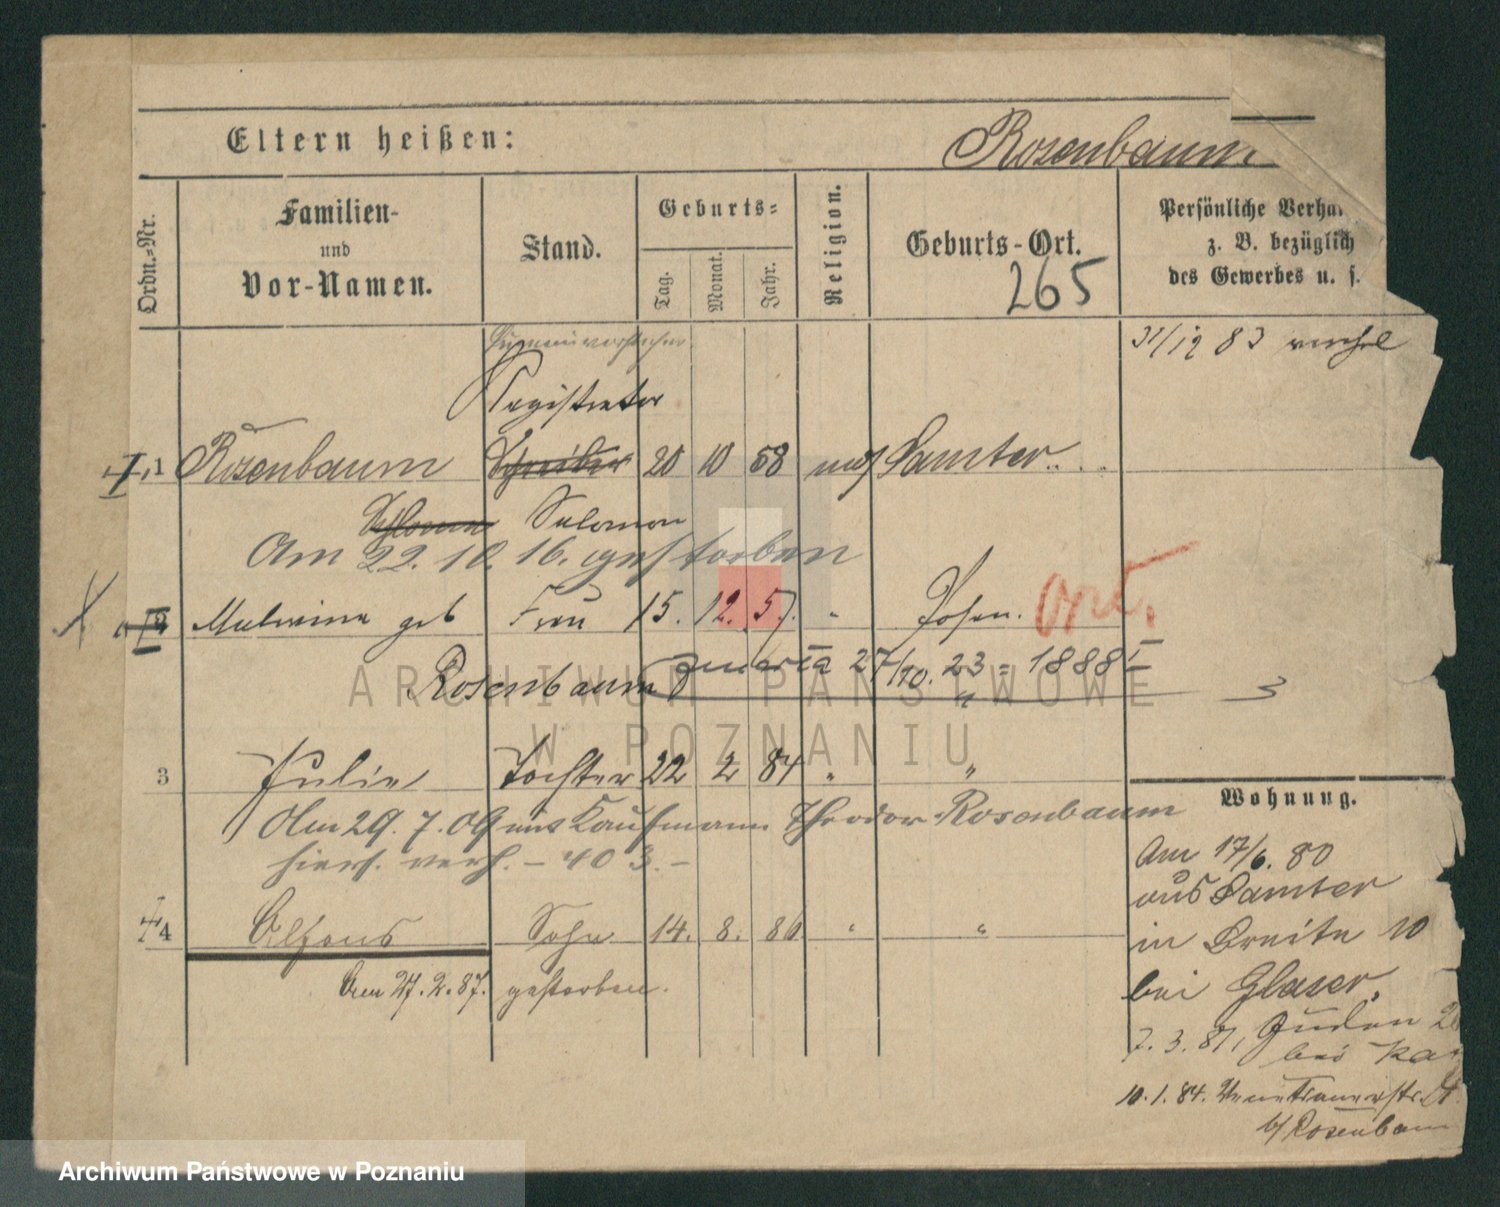 Eltern heißen:
Rosenbaum
Ordn.-Nr.
Familien-
und
Vor-Namen.
Stand.
Geburts-
Tag.
Monat.
Jahr.
Religion.
Geburts-Ort.
265
Persönliche Verhä
z. B. bezüglich
des Gewerbes u. s.
31/12 83 verehel
Registrator
I, 1 Rosenbaum Schreiber 20 10 58 mos Samter
Salomon
Am 22. 10. 16. gestorben
II 2 Malwine geb Frau 15. 12. 57. " Posen. Ort.
Rosenbaum 27/10. 23 = 1888 I
ARCHIWUM PAŃSTWOWE
W POZNANIU
3 Julie Tochter 22 2 84 " "
Am 29. 7. 09 mit Kaufmann Theodor Rosenbaum
hiers. verh. – 403 –
4 Alfons Sohn 14. 8. 86 " "
Am 27. 2. 87. gestorben.
Wohnung.
Am 17/6. 80
aus Samter
in Breite 10
bei Glaser,
7. 3. 81, Juden
bei Ka
10. 1. 84.
b/ Rosenbaum
Archiwum Państwowe w Poznaniu